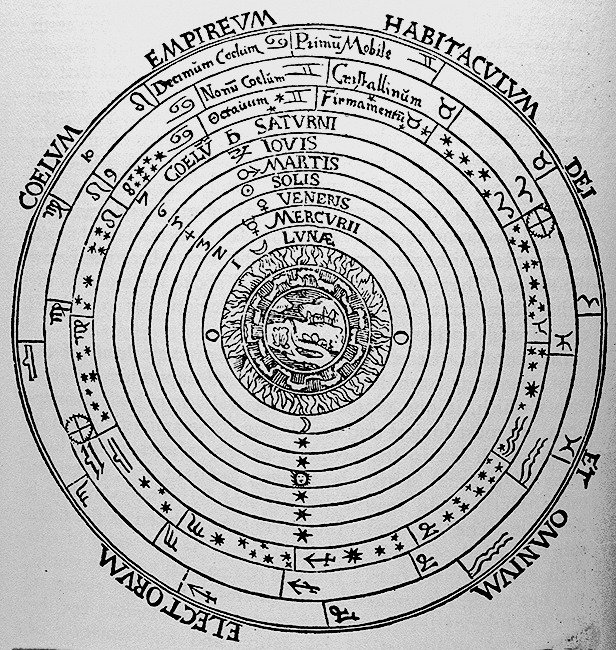 COELVM EMPIREVM HABITACVLVM DEI ET OMNIVM ELECTORVM
Decimum Coelum Primũ Mobile
Nonũ Coelum Cristallinum
8 Octauum Firmamentũ
7 COELV SATVRNI
6 IOVIS
5 MARTIS
4 SOLIS
3 VENERIS
2 MERCVRII
1 LVNÆ